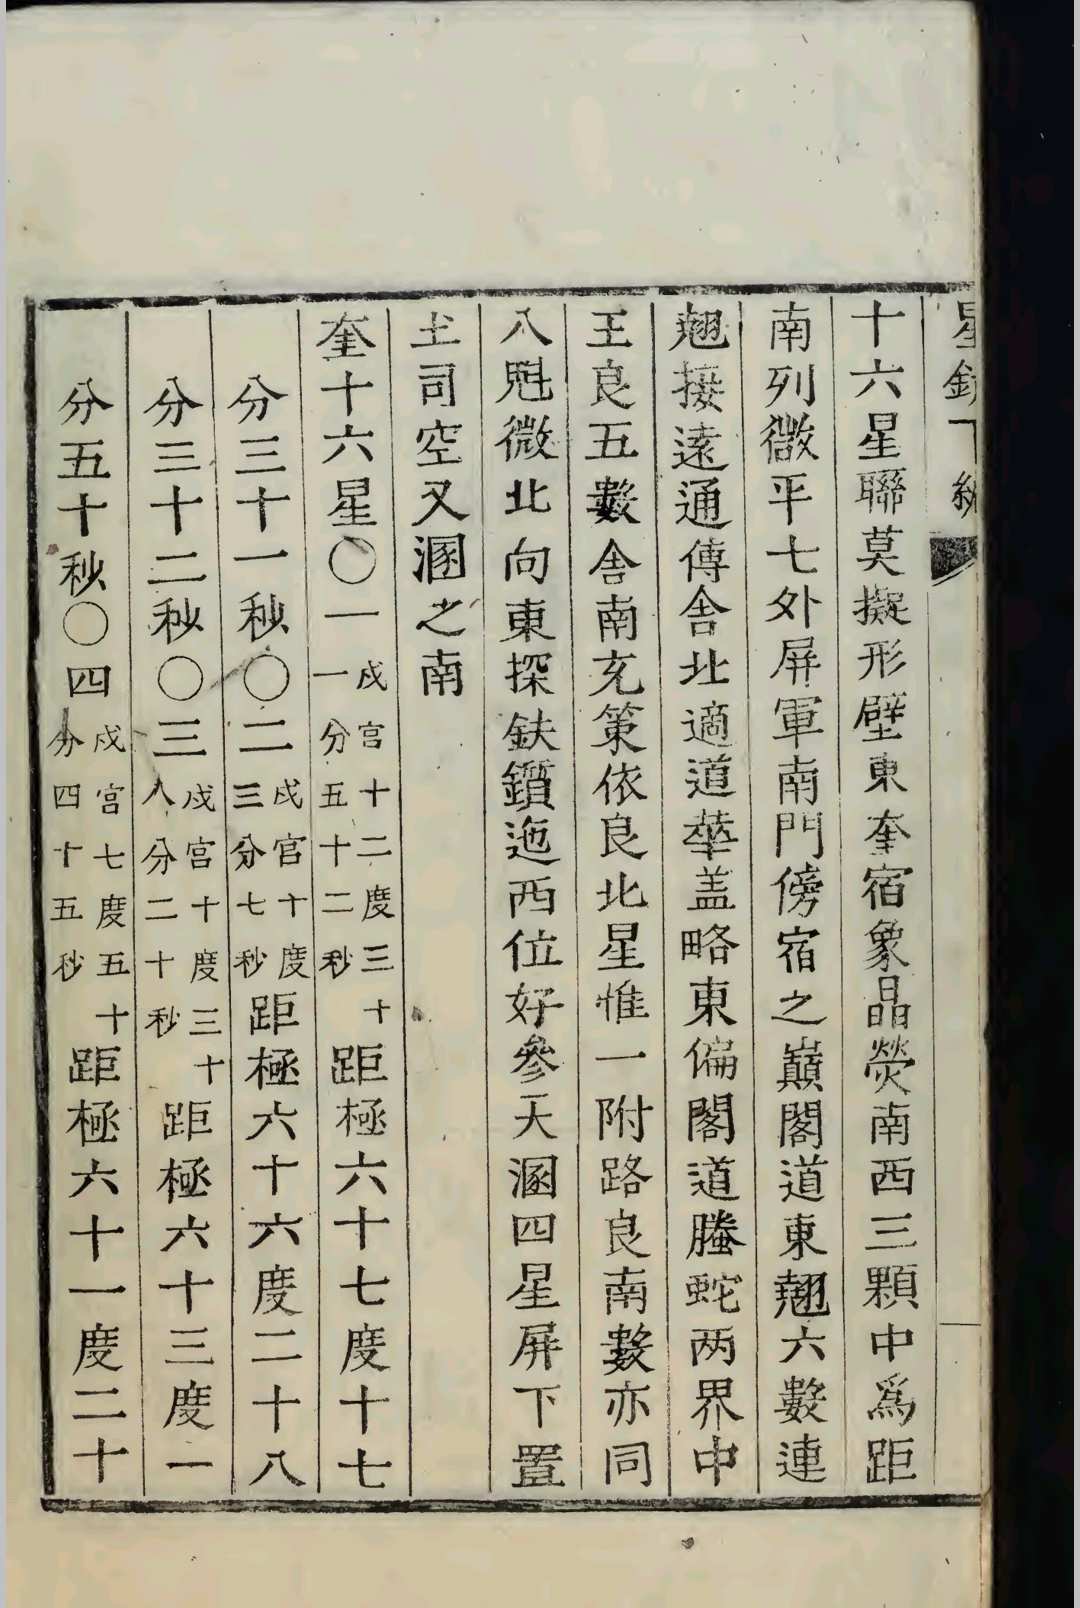 星鏡下編
十六星聯莫擬形壁東奎宿象晶熒南西三顆中爲距
南列微平七外屏軍南門傍宿之巔閣道東翹六數連
翹接遠通傳舎北適道華盖略東偏閣道螣蛇两界中
王良五數舎南充策依良北星惟一附路良南數亦同
八魁微北向東探鈇鑕迤西位好參天溷四星屏下置
土司空又溷之南
奎十六星〇一戍宮十二度三十一分五十二秒距極六十七度十七
分三十一秒〇二戍宮十度三分七秒距極六十六度二十八
分三十二秒〇三戍宮十度三十八分二十秒距極六十三度一
分五十秒〇四戍宮七度五十分四十五秒距極六十一度二十